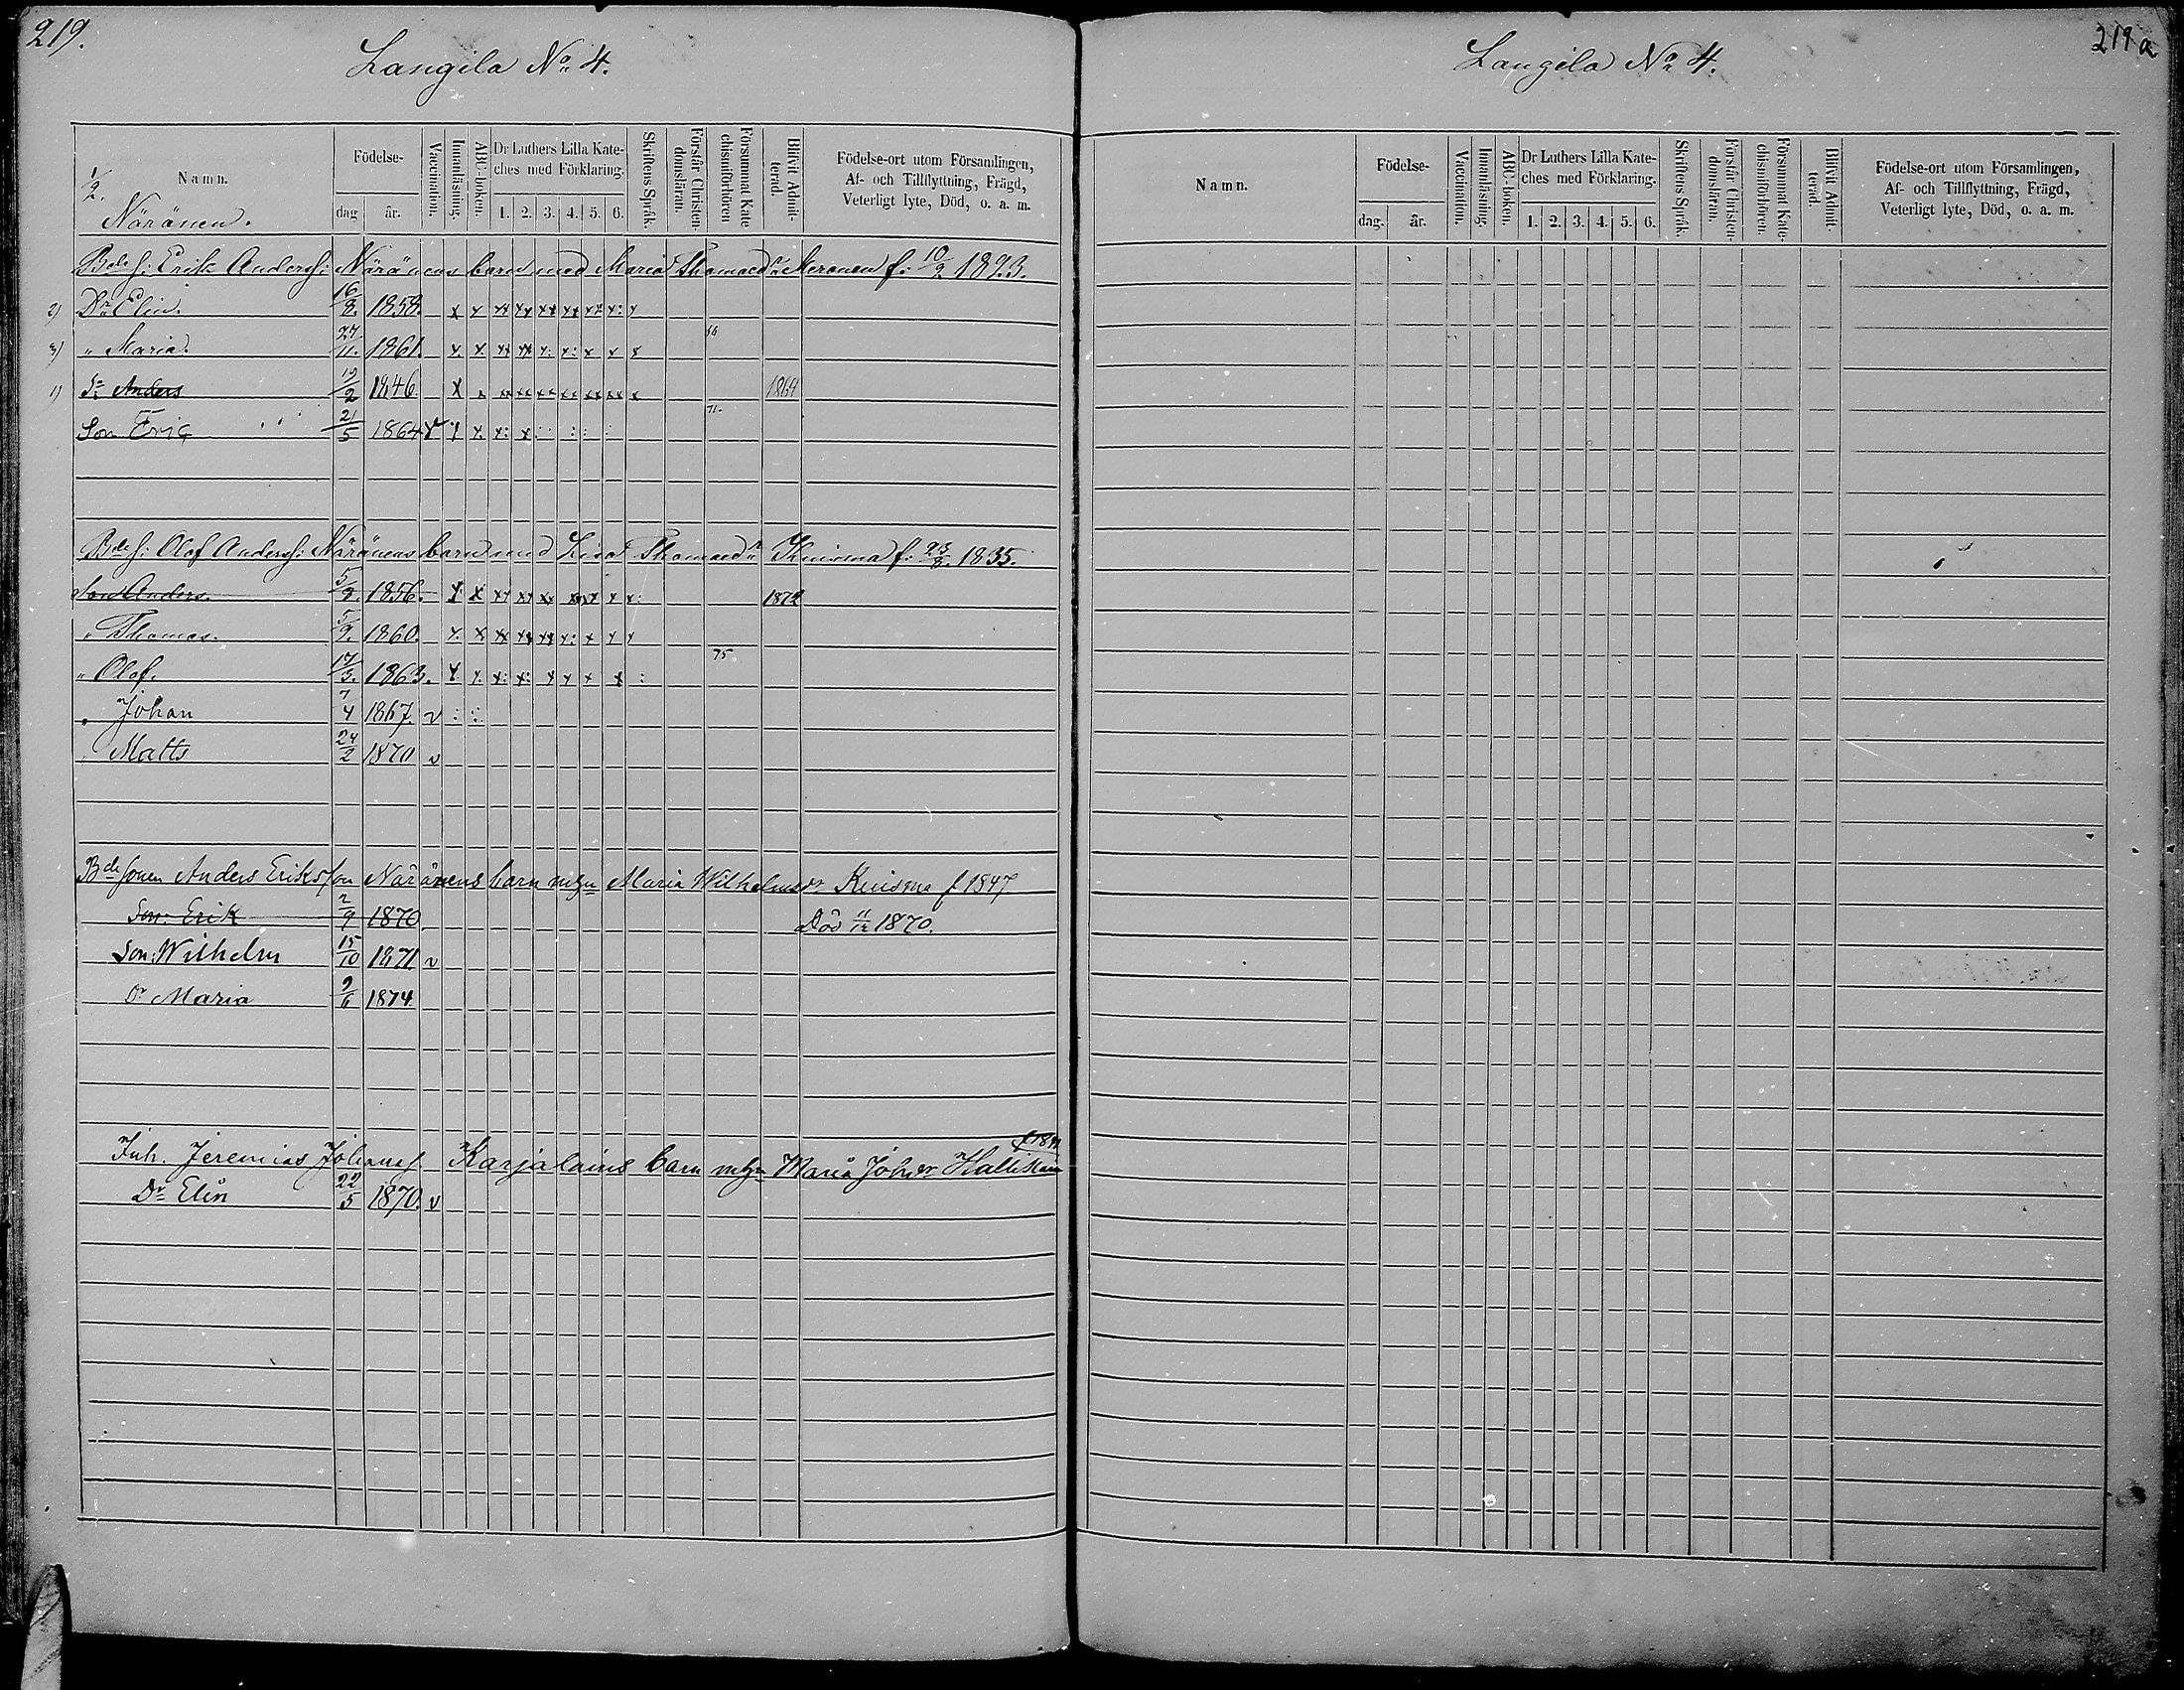 219.
Langila No 4.
Namn.
Födelse-
dag
år.
Vaccination.
Innanläsning.
ABC-boken.
Dr Luthers Lilla Kate-
ches med Förklaring.
1. 2. 3. 4. 5. 6.
Skriftens Språk.
Förstår Christen-
domsläran.
Försummat Kate
chismiförhören
Blifvit Admit-
terad.
Födelse-ort utom Församlingen,
Af- och Tillflyttning, Frägd,
Veterligt lyte, Död, o. a. m.
1/2.
Näränen.
Bde s: Erik Anders: Näränens barn med Maria Thomaedr f: 10/2 1823.
2) Dr Elin. 16/8. 1858. x x xx xx xx xx x: x: x
3) " Maria. 27/11. 1861. x x xx xx x: x: x x x
1) Sn Anders 19/2 1846 x x xx xx xx xx xx xx x 1864
Son Eric 21/5 1864 v x x x: x : : : : 71.
Bde s: Olof Anders: Näränens barn med Lisa Thomaedr Kuisma f: 23/8. 1835.
Son Anders. 5/8 1856. x x xx xx xx xx x x x: 1872
" Thomas. 5/9. 1860. x x xx xx xx x: x x x
" Olof. 17/3. 1863. x x x: x: x x x x : 75
" Johan 7/4 1867. v : :
" Matts 24/2 1870 v
Bde sonen Anders Eriksson Näränens barn m hu Maria Wilhelmsdr Kuisma f 1847
Son: Erik 2/9 1870. Död 11/12 1870.
Son: Wilhelm 15/10 1871 v
Dr Maria 9/6 1874
Inh. Jeremias Johans Karjalains barn m hu Maria Johdr
Dr Elin 22/5 1870. v
219 a
Langila No 4.
Namn.
Födelse-
dag.
år.
Vaccination.
Innanläsning.
ABC-boken.
Dr Luthers Lilla Kate-
ches med Förklaring.
1. 2. 3. 4. 5. 6.
Skriftens Språk.
Förstår Christen-
domsläran.
Försummat Kate-
chismiförhören.
Blifvit Admit-
terad.
Födelse-ort utom Församlingen,
Af- och Tillflyttning, Frägd,
Veterligt lyte, Död, o. a. m.